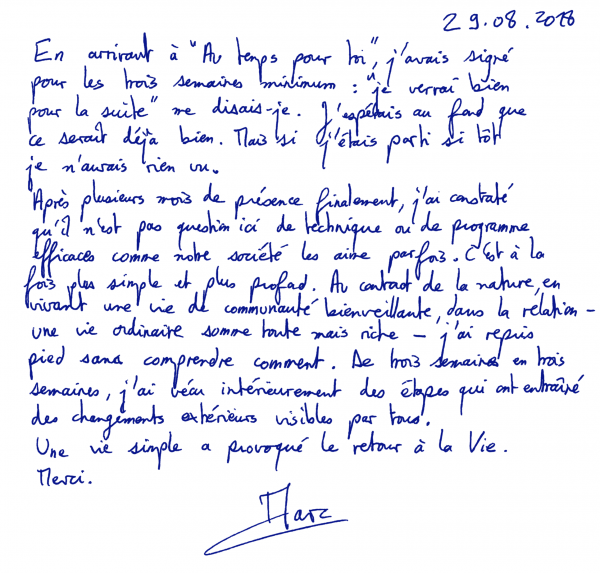 29.08.2018
En arrivant à "Au temps pour toi", j'avais signé
pour les trois semaines minimum : "je verrai bien
pour la suite" me disais-je. J'espérais au fond que
ce serait déjà bien. Mais si j'étais parti si tôt
je n'aurais rien vu.
Après plusieurs mois de présence finalement, j'ai constaté
qu'il n'est pas question ici de technique ou de programme
efficaces comme notre société les aime parfois. C'est à la
fois plus simple et plus profond. Au contact de la nature, en
vivant une vie de communauté bienveillante, dans la relation -
une vie ordinaire somme toute mais riche - j'ai repris
pied sans comprendre comment. De trois semaines en trois
semaines, j'ai vécu intérieurement des étapes qui ont entraîné
des changements extérieurs visibles par tous.
Une vie simple a provoqué le retour à la Vie.
Merci.
Marc